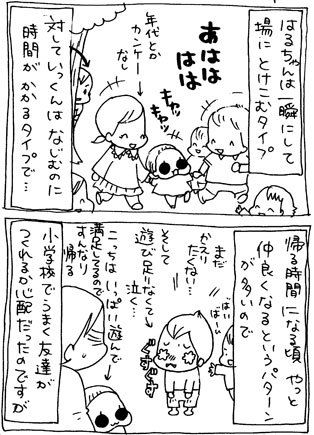 はるちゃんは一瞬にして
場にとけこむタイプ
あはは
はは
年代とか
カンケー
なし
キャッ
キャッ
対していっくんはなじむのに
時間が
かかるタイプで…
帰る時間になる頃やっと
仲良くなるというパターン
が多いので
ばい
ばーい
まだ
たりない…
そして
遊び足りなくて
泣く…
ぐず
ぐず
こっちはいっぱい遊んで
満足してるので
すんなり
帰る
小学校でうまく友達が
つくれるか心配だったのですが